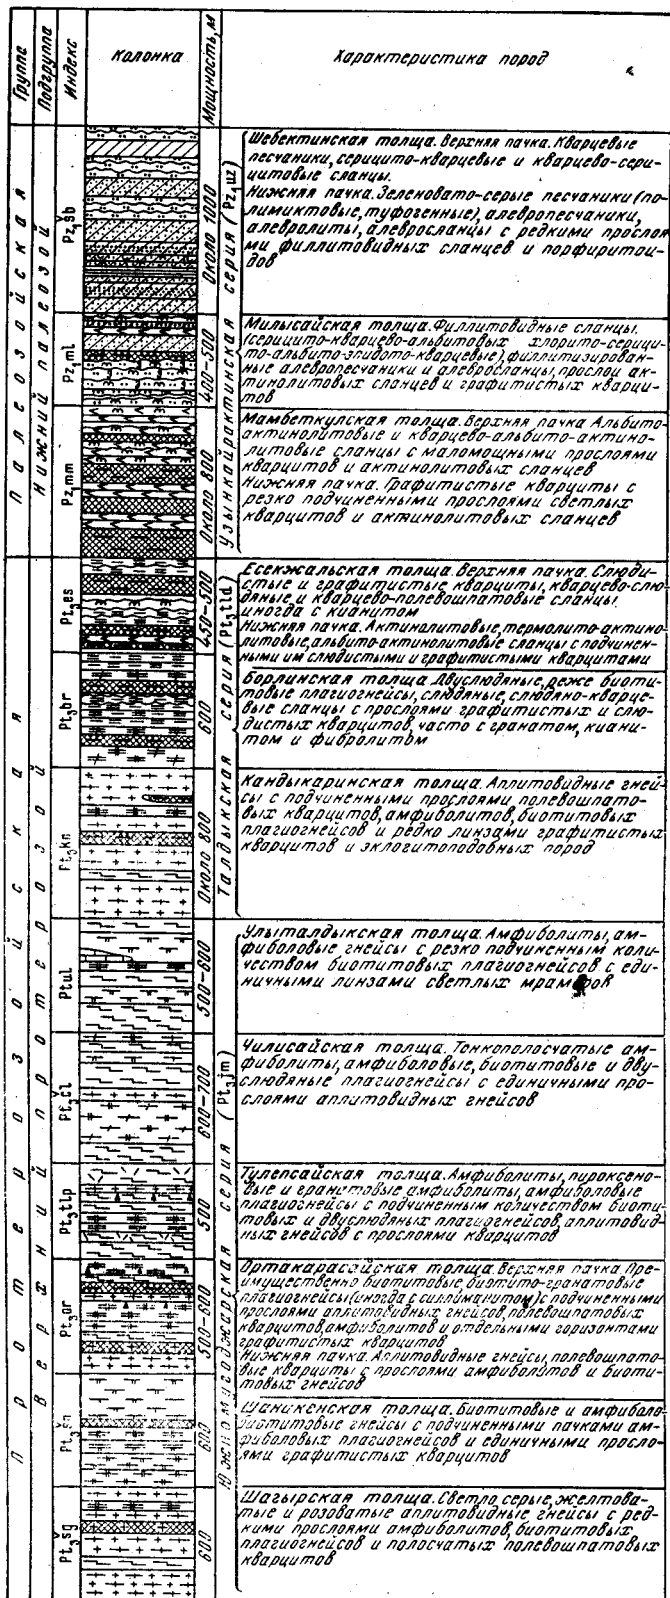 Группа
Подгруппа
Индекс
Колонка
Мощность, м
Характеристика пород
Палеозойская
Нижний палеозой
Протерозойская
Верхний протерозой
Узынкайрактинская серия (Pz₁uz)
Талдыкская серия (Pt₃tld)
Южномугоджарская серия (Pt₃jm)
Pz₁šb
Около 1000
Шебектинская толща. Верхняя пачка. Кварцевые
песчаники, серицито-кварцевые и кварцево-сери-
цитовые сланцы.
Нижняя пачка. Зеленовато-серые песчаники (по-
лимиктовые, туфогенные), алевропесчаники,
алевролиты, алевросланцы с редкими просло-
ями филлитовидных сланцев и порфиритои-
дов
Pz₁ml
400-500
Милысайская толща. Филлитовидные сланцы
(серицито-кварцево-альбитовых хлорито-серици-
то-альбито-эпидото-кварцевые), филлитизирован-
ные алевропесчаники и алевросланцы, прослои ак-
тинолитовых сланцев и графитистых кварци-
тов
Pz₁mm
Около 800
Мамбеткулская толща. Верхняя пачка Альбито-
актинолитовые и кварцево-альбито-актино-
литовые сланцы с маломощными прослоями
кварцитов и актинолитовых сланцев
Нижняя пачка. Графитистые кварциты с
резко подчиненными прослоями светлых
кварцитов и актинолитовых сланцев
Pt₃es
450-500
Есекжальская толща. Верхняя пачка. Слюди-
стые и графитистые кварциты, кварцево-слю-
дяные, и кварцево-полевошпатовые сланцы
иногда с кианитом
Нижняя пачка. Актинолитовые, термолито-актино-
литовые, альбито-актинолитовые сланцы с подчинен-
ными им слюдистыми и графитистыми кварцитами
Pt₃br
600
Борлинская толща. Двуслюдяные, реже биоти-
товые плагиогнейсы, слюдяные, слюдяно-кварце-
вые сланцы с прослоями графитистых и слю-
дистых кварцитов, часто с гранатом, киани-
том и фибролитом
Pt₃kn
Около 800
Кандыкаринская толща. Аплитовидные гней-
сы с подчиненными прослоями полевошпато-
вых кварцитов, амфиболитов, биотитовых
плагиогнейсов и редко линзами графитистых
кварцитов и эклогитоподобных пород
Ptul
500-600
Улыталдыкская толща. Амфиболиты, ам-
фиболовые гнейсы с резко подчиненным коли-
чеством биотитовых плагиогнейсов с еди-
ничными линзами светлых мраморов
Pt₃čl
600-700
Чилисайская толща. Тонкополосчатые ам-
фиболиты, амфиболовые, биотитовые и дву-
слюдяные плагиогнейсы с единичными про-
слоями аплитовидных гнейсов
Pt₃tlp
500
Тулепсайская толща. Амфиболиты, пироксено-
вые и гранитовые амфиболиты, амфиболовые
плагиогнейсы с подчиненным количеством биоти-
товых и двуслюдяных плагиогнейсов, аплитовид-
ных гнейсов с прослоями кварцитов
Pt₃or
500-600
Ортакарасайская толща. Верхняя пачка. Пре-
имущественно биотитовые, биотито-гранатовые
плагиогнейсы (иногда с силлиманитом) с подчиненными
прослоями аплитовидных гнейсов, полевошпатовых
кварцитов, амфиболитов и отдельными горизонтами
графитистых кварцитов
Нижняя пачка. Аплитовидные гнейсы, полевошпато-
вые кварциты с прослоями амфиболитов и биоти-
товых гнейсов
Pt₃šn
600
Шаникенская толща. Биотитовые и амфиболо-
биотитовые гнейсы с подчиненными пачками ам-
фиболовых плагиогнейсов и единичными просло-
ями графитистых кварцитов
Pt₃šg
600
Шагырская толща. Светло серые, желтова-
тые и розоватые аплитовидные гнейсы с ред-
кими прослоями амфиболитов, биотитовых
плагиогнейсов и полосчатых полевошпатовых
кварцитов